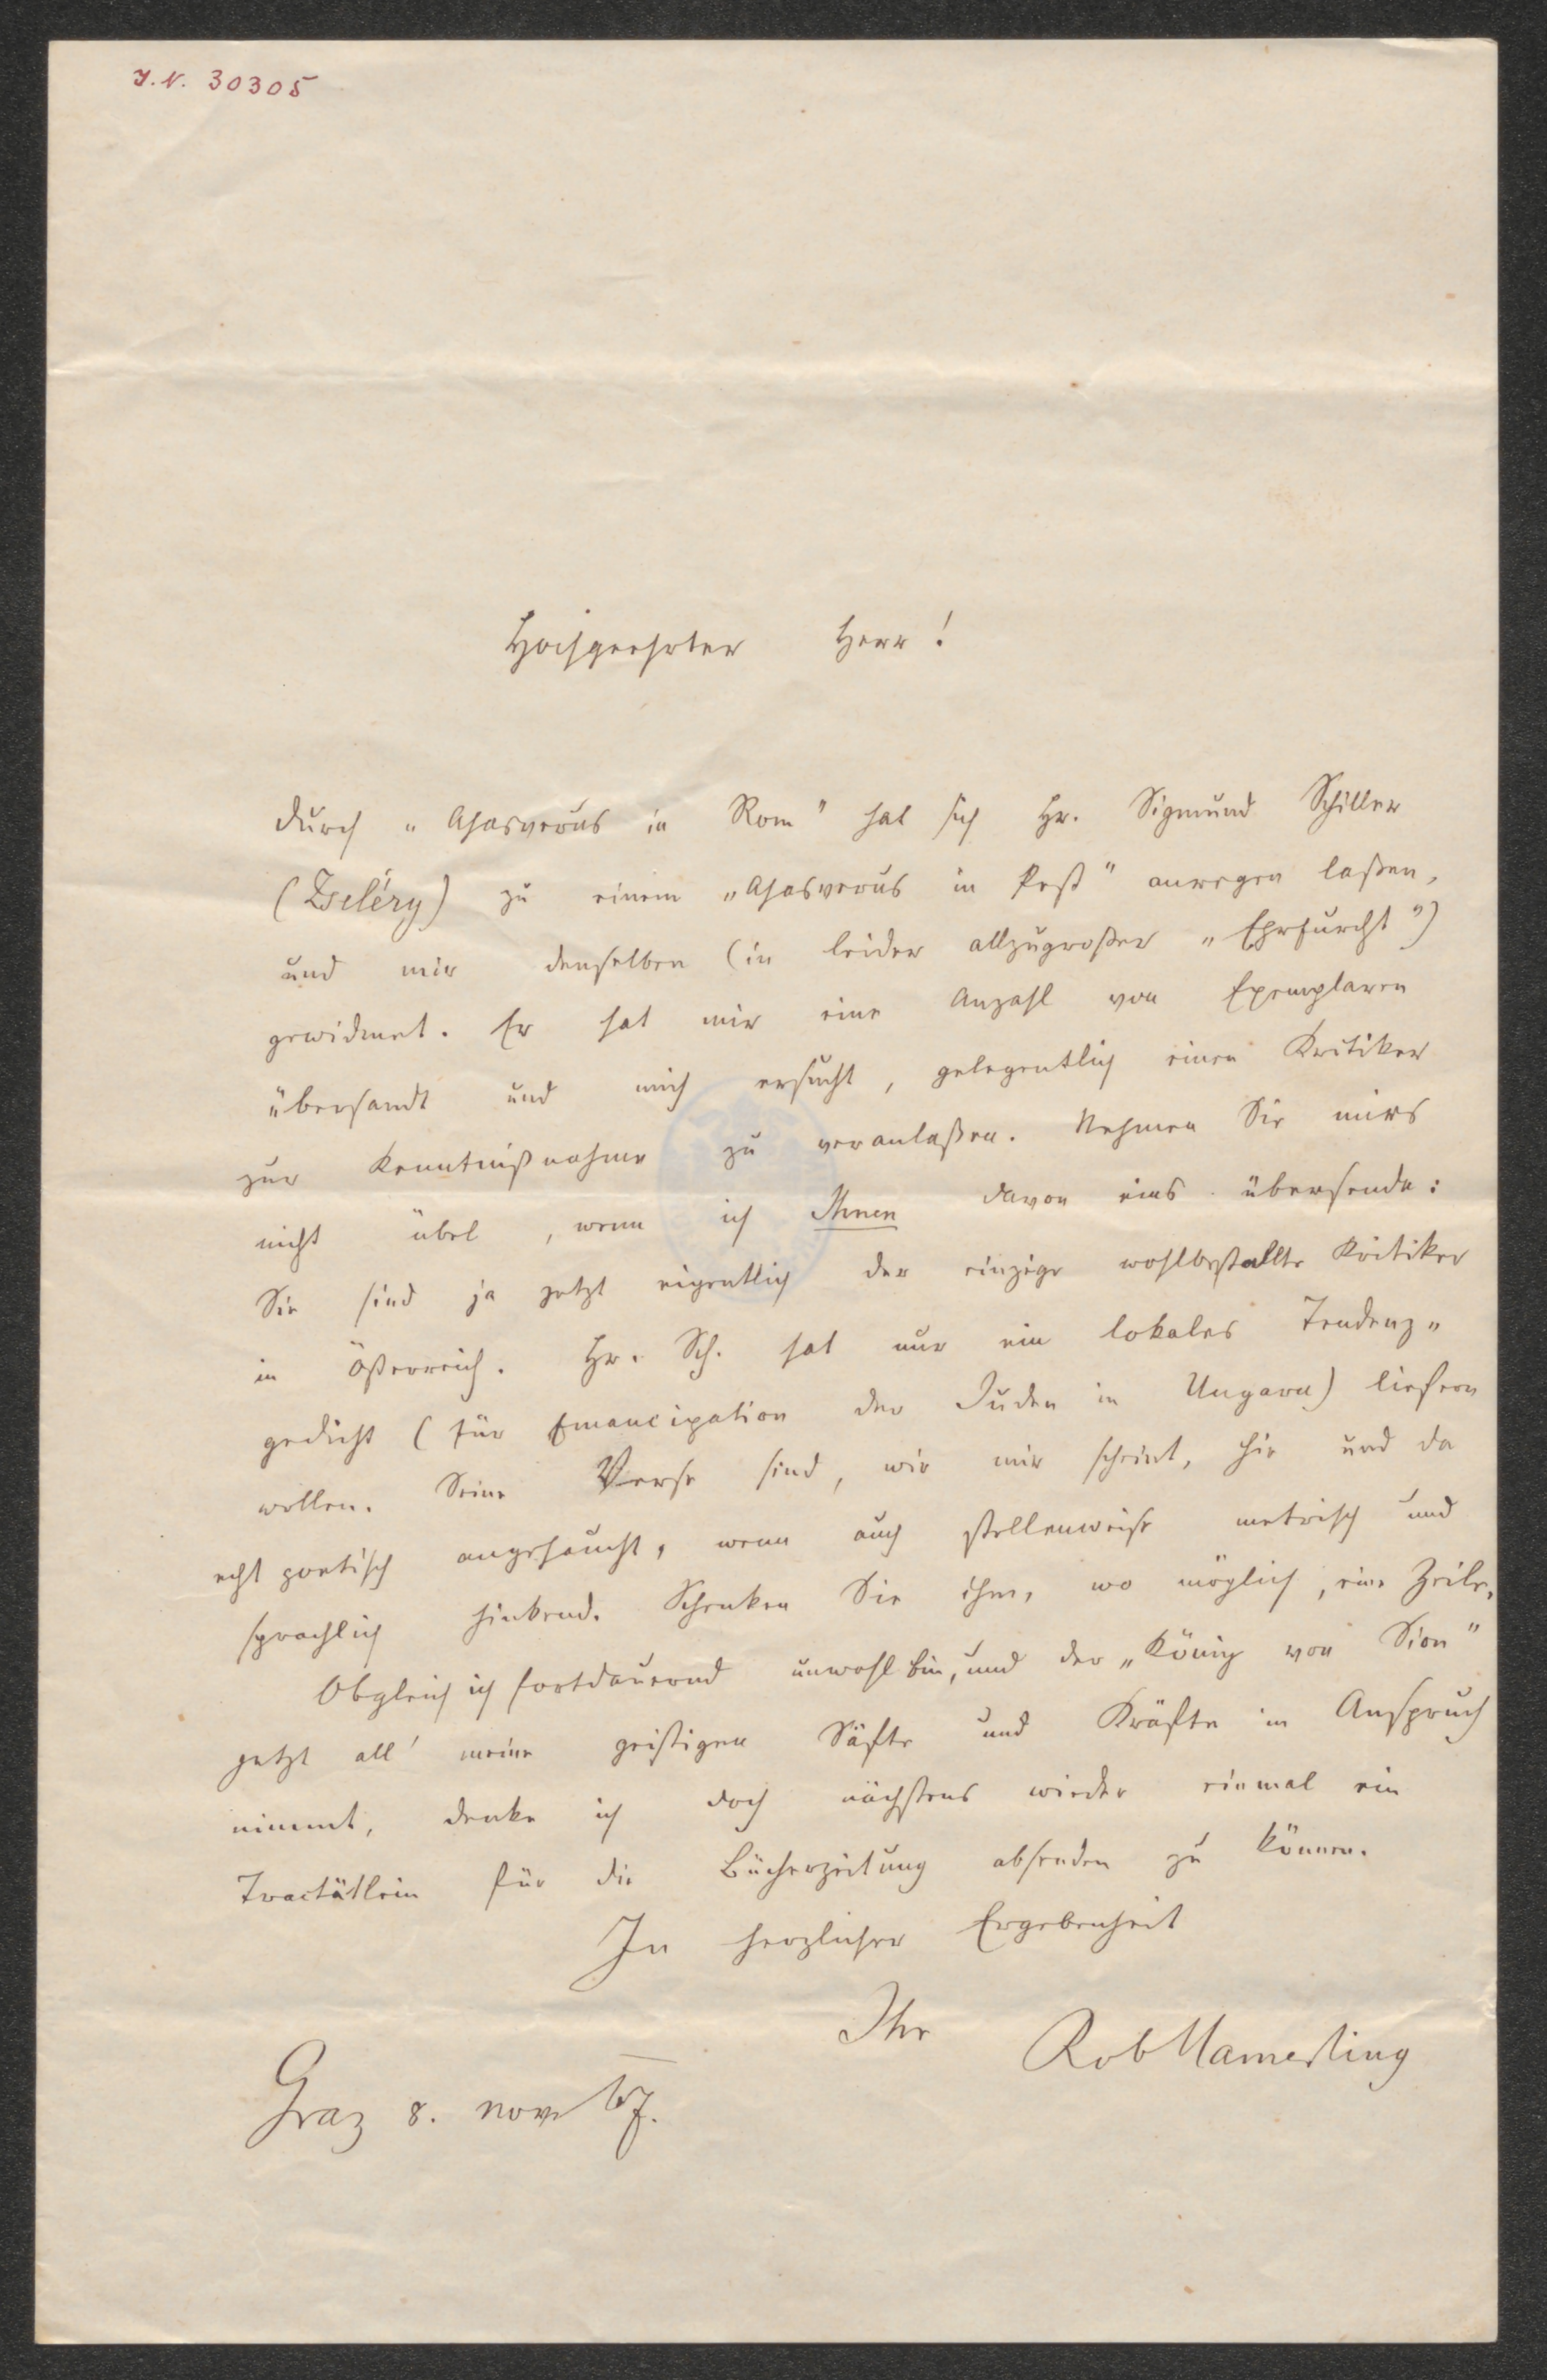 I. N. 30305
Hochgeehrter Herr!
Durch „Ahasverus in Rom" hat sich Hr. Sigmund Schiller
(Zseléry) zu einem „Ahasverus in Pest" anregen laßen,
und mir denselben (in leider allzugroßer „Ehrfurcht")
gewidmet. Er hat mir eine Anzahl von Exemplaren
übersandt und mich ersucht, gelegentlich einen Kritiker
zur Kenntnißnahme zu veranlaßen. Nehmen Sie mirs
nicht übel, wenn ich Ihnen davon eins übersende:
Sie sind ja jetzt eigentlich der einzige wohlbestallte Kritiker
in Österreich. Hr. Sch. hat nur ein lokales Tendenz„
gedicht (für Emancipation der Juden in Ungarn) liefern
wollen. Seine Verse sind, wie mir scheint, hie und da
echt poetisch angehaucht, wenn auch stellenweise metrisch und
sprachlich hinkend. Schenken Sie ihm, wo möglich, eine Zeile.
Obgleich ich fortdauernd unwohl bin, und der „König von Sion"
jetzt all' meine geistigen Säfte und Kräfte in Anspruch
nimmt, denke ich doch nächstens wieder einmal ein
Tractätlein für die Bücherzeitung absenden zu können.
In herzlicher Ergebenheit
Ihr Rob Hamerling
Graz 8. Nov 67.